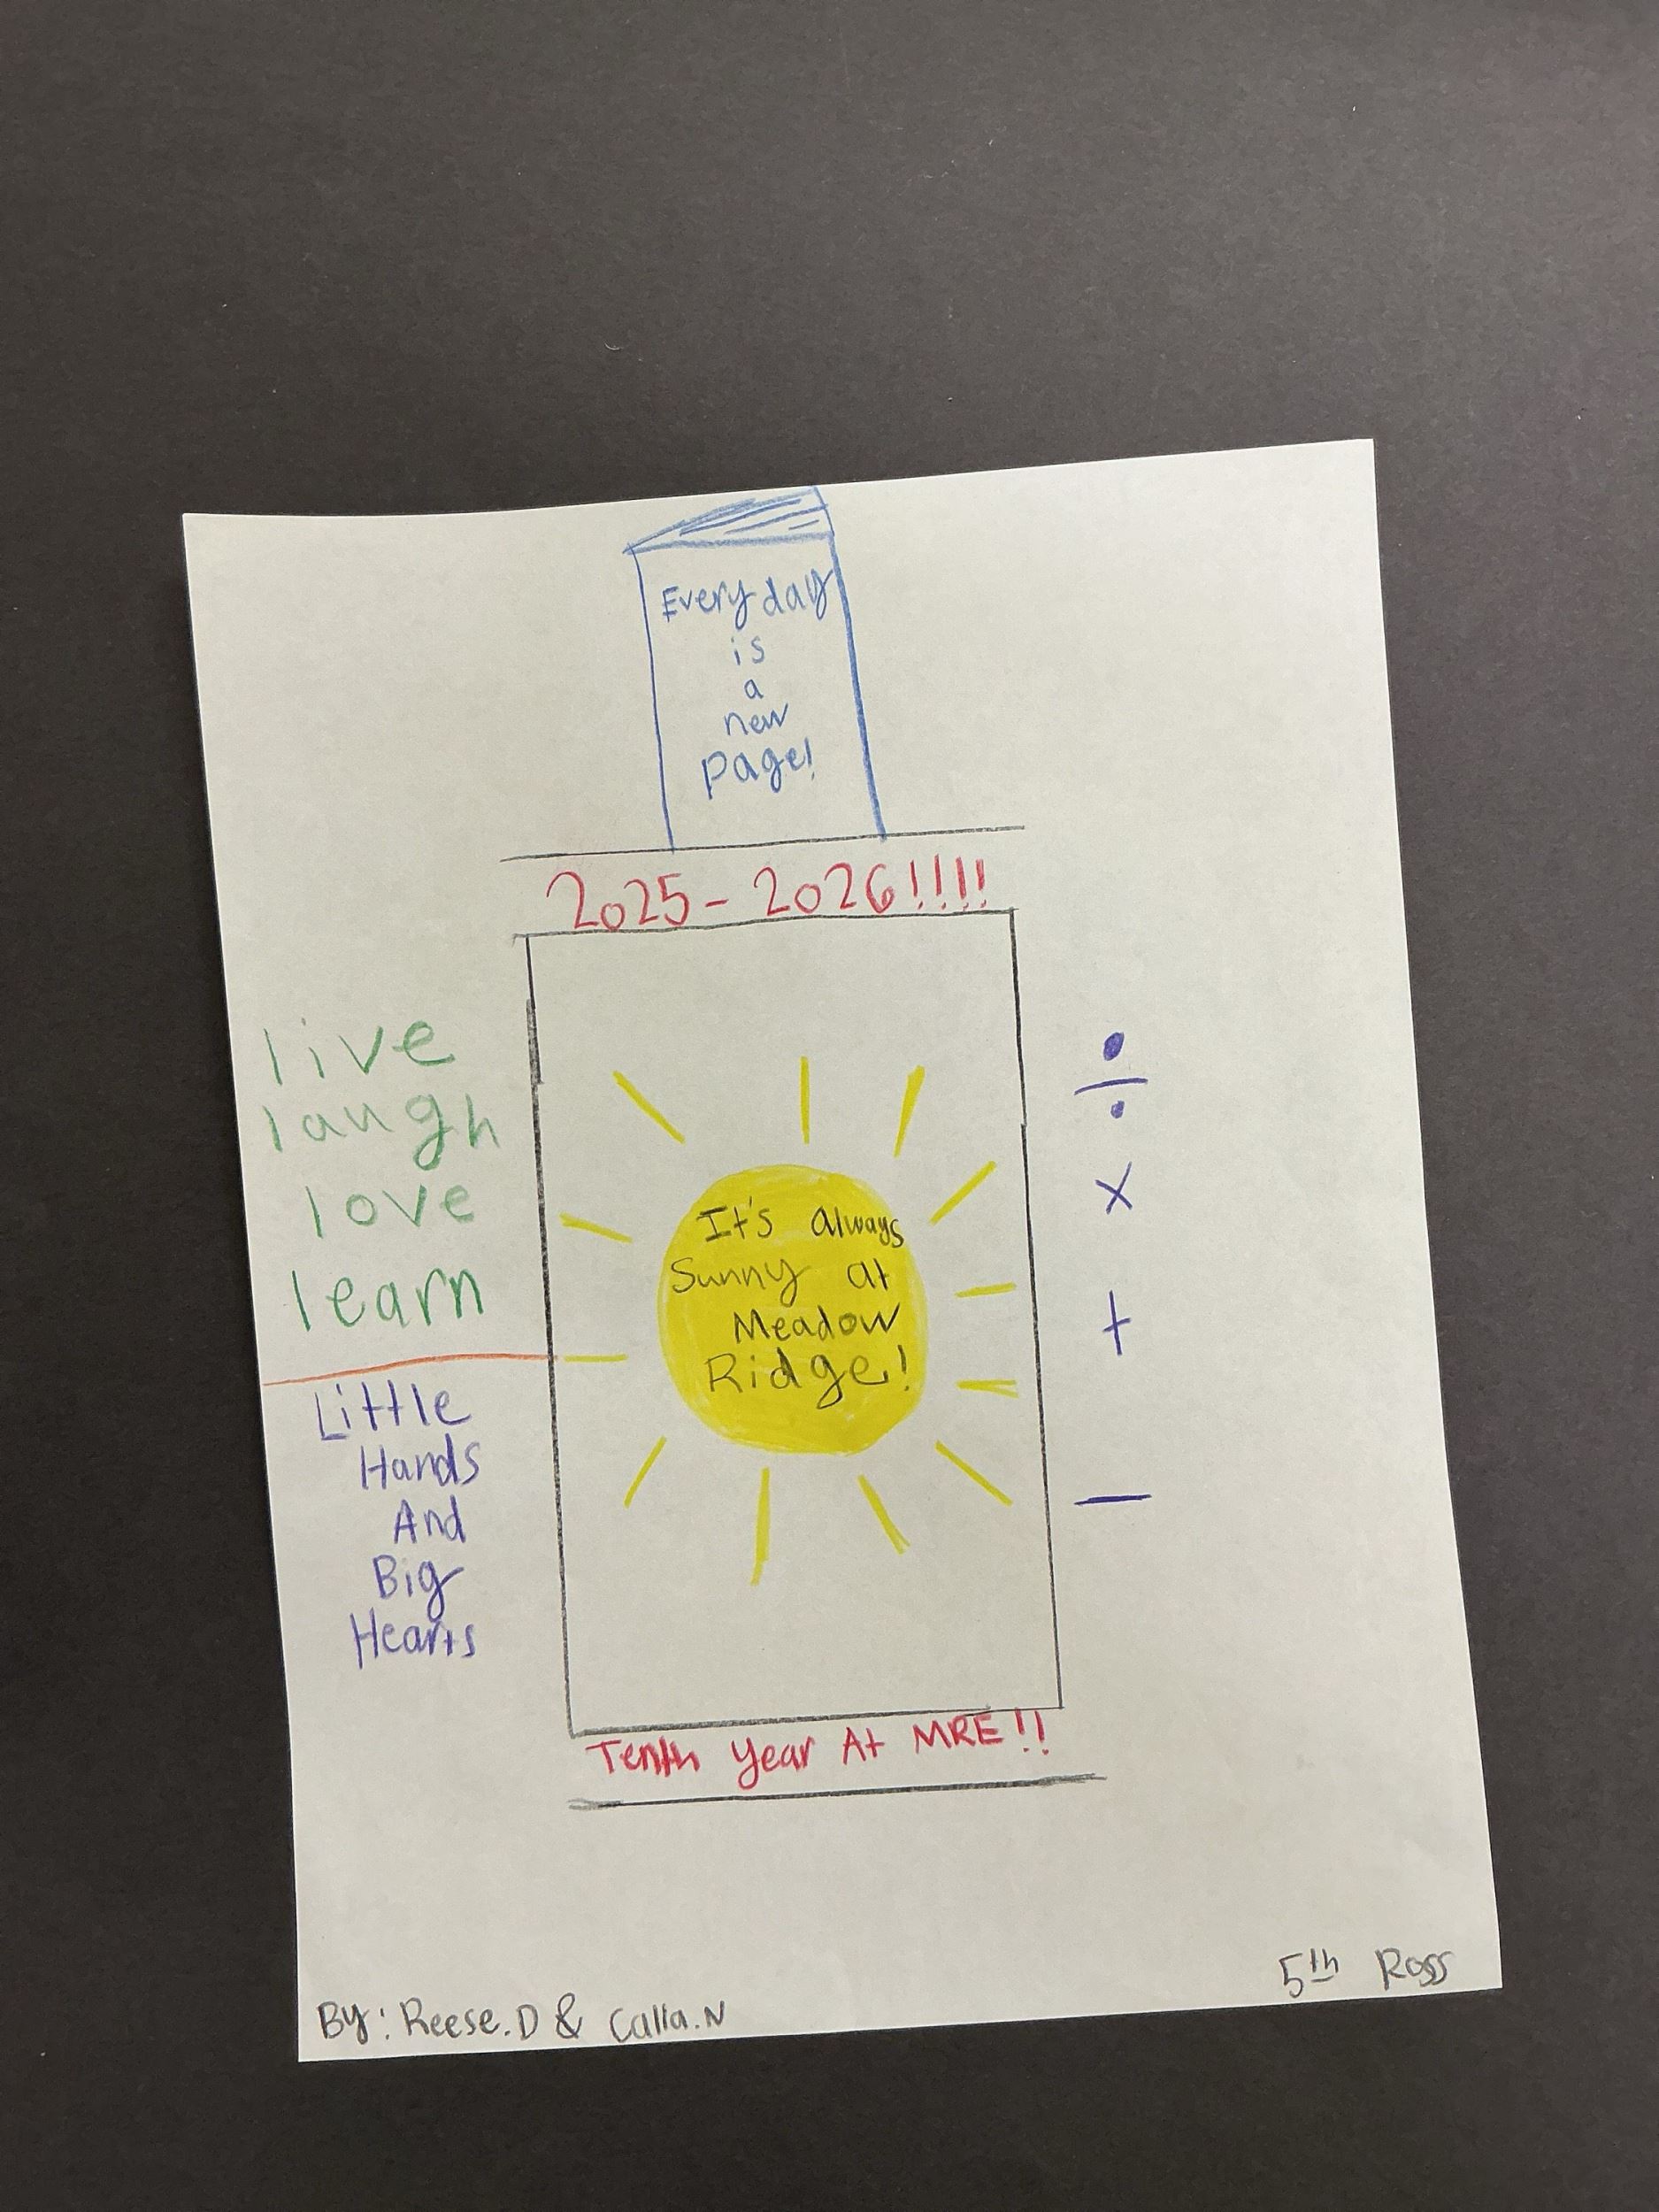 Everyday
is
a
new
page!
2025-2026!!!!
live
laugh
love
learn
Little
Hands
And
Big
Hearts
It's always
Sunny at
Meadow
Ridge!
÷
×
+
−
Tenth Year At MRE!!
By: Reese.D & Calla.N
5th Ross